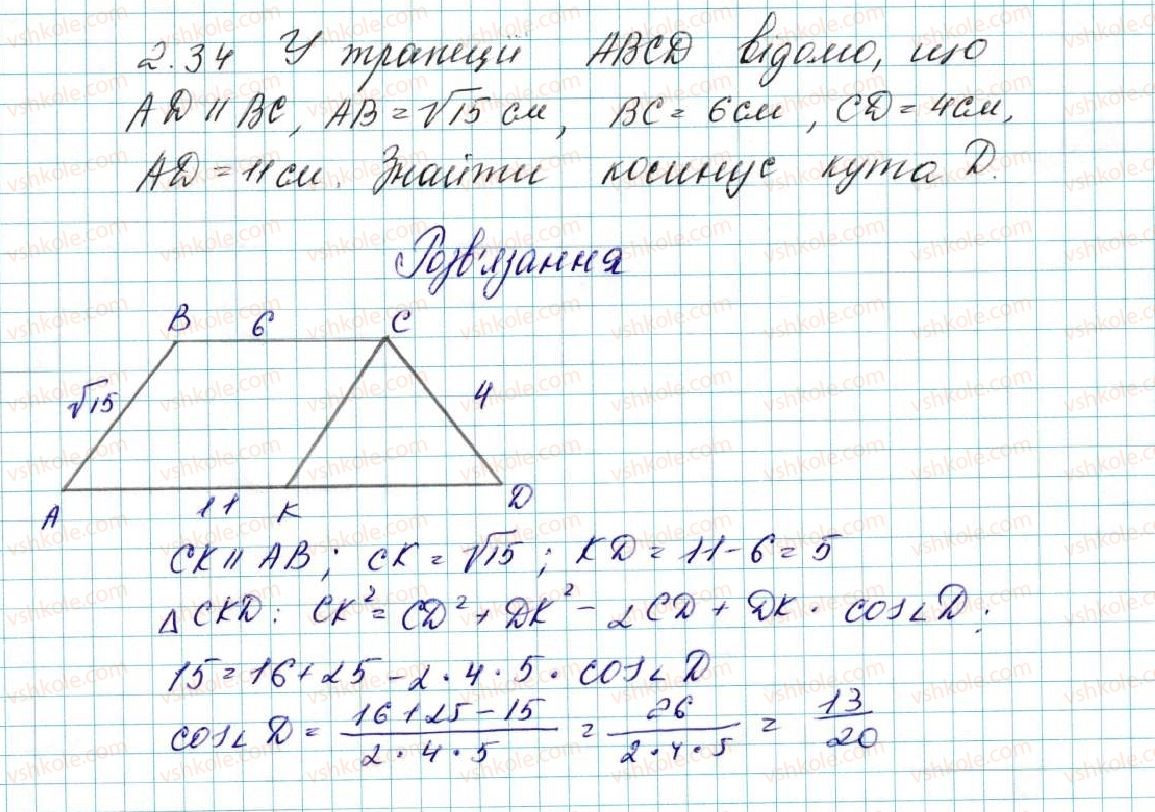 2.34 У трапеції ABCD відомо, що
AD || BC, AB = √15 см, BC = 6 см, CD = 4 см,
AD = 11 см. Знайти косинус кута D.
Розв'язання
B 6 C
√15 4
A 11 K D
CK || AB; CK = √15; KD = 11 - 6 = 5
Δ CKD: CK² = CD² + DK² - 2 CD + DK · cos∠D;
15 = 16 + 25 - 2 · 4 · 5 · cos∠D
cos∠D = (16 + 25 - 15)/(2 · 4 · 5) = 26/(2 · 4 · 5) = 13/20
vshkole.com